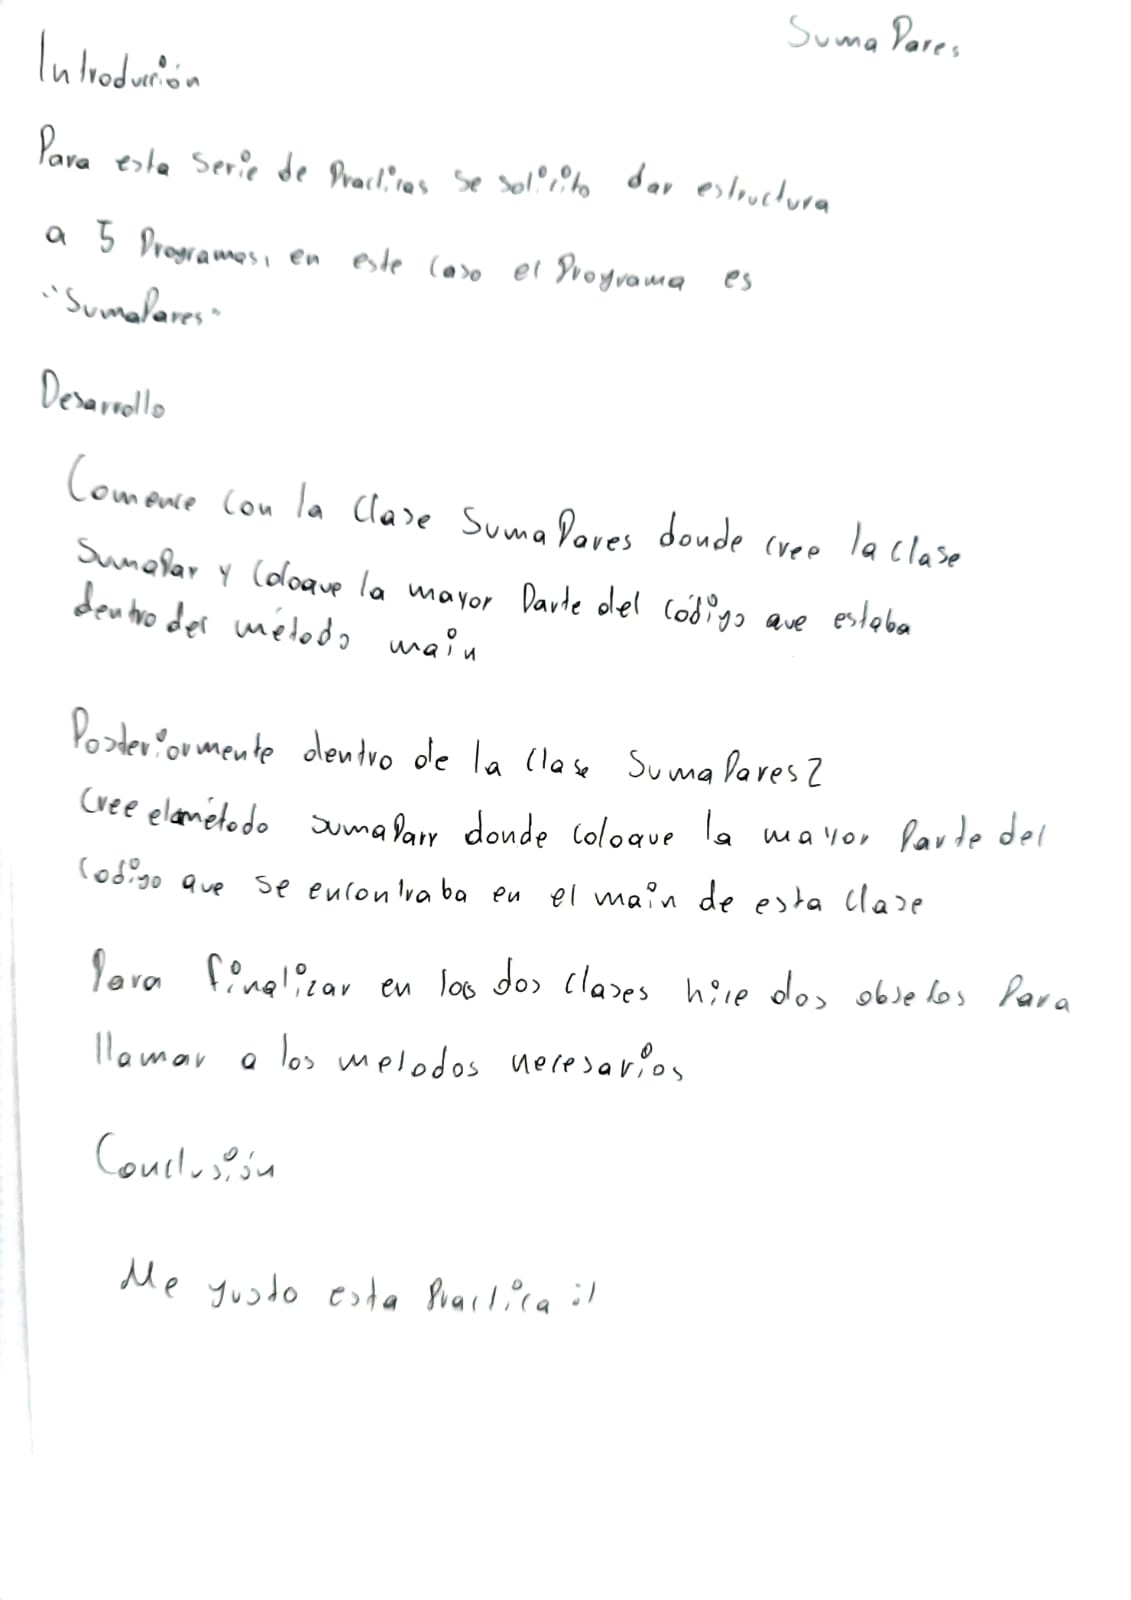 SumaPares
Introducción
Para esta serie de Practicas se solicito dar estructura
a 5 Programas, en este caso el Programa es
"SumaPares"
Desarrollo
Comence con la Clase SumaPares donde cree la clase
SumaPar y Coloque la mayor Parte del código que estaba
dentro del método main
Posteriormente dentro de la Clase SumaPares2
Cree el método sumaParr donde coloque la mayor Parte del
Codigo que se encontraba en el main de esta Clase
Para finalizar en las dos Clases hice dos objetos Para
llamar a los metodos necesarios
Conclusión
Me gusto esta Practica :)